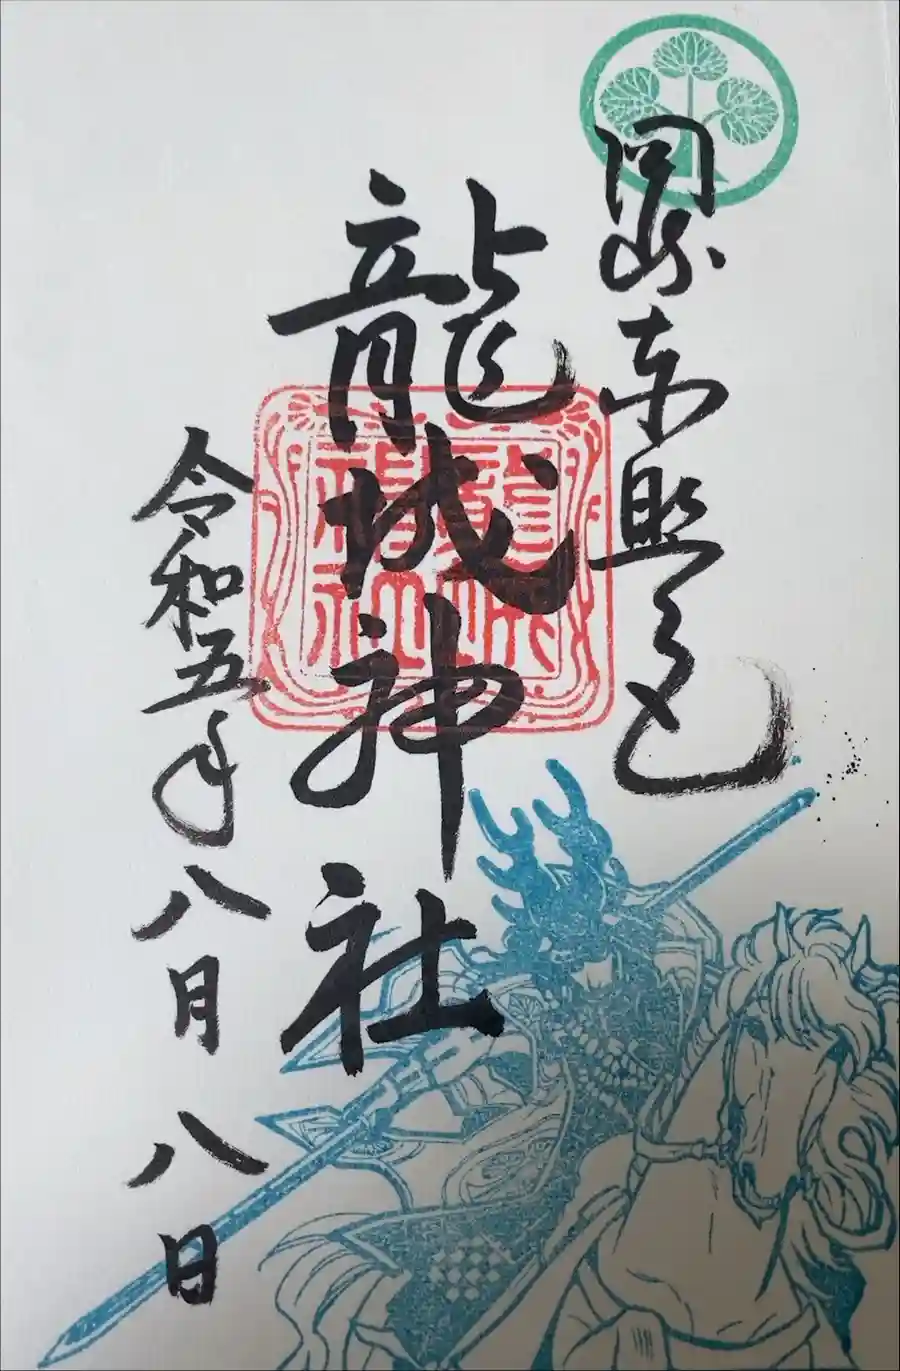 岡崎東照宮
龍城神社
龍城神社
令和五年八月八日